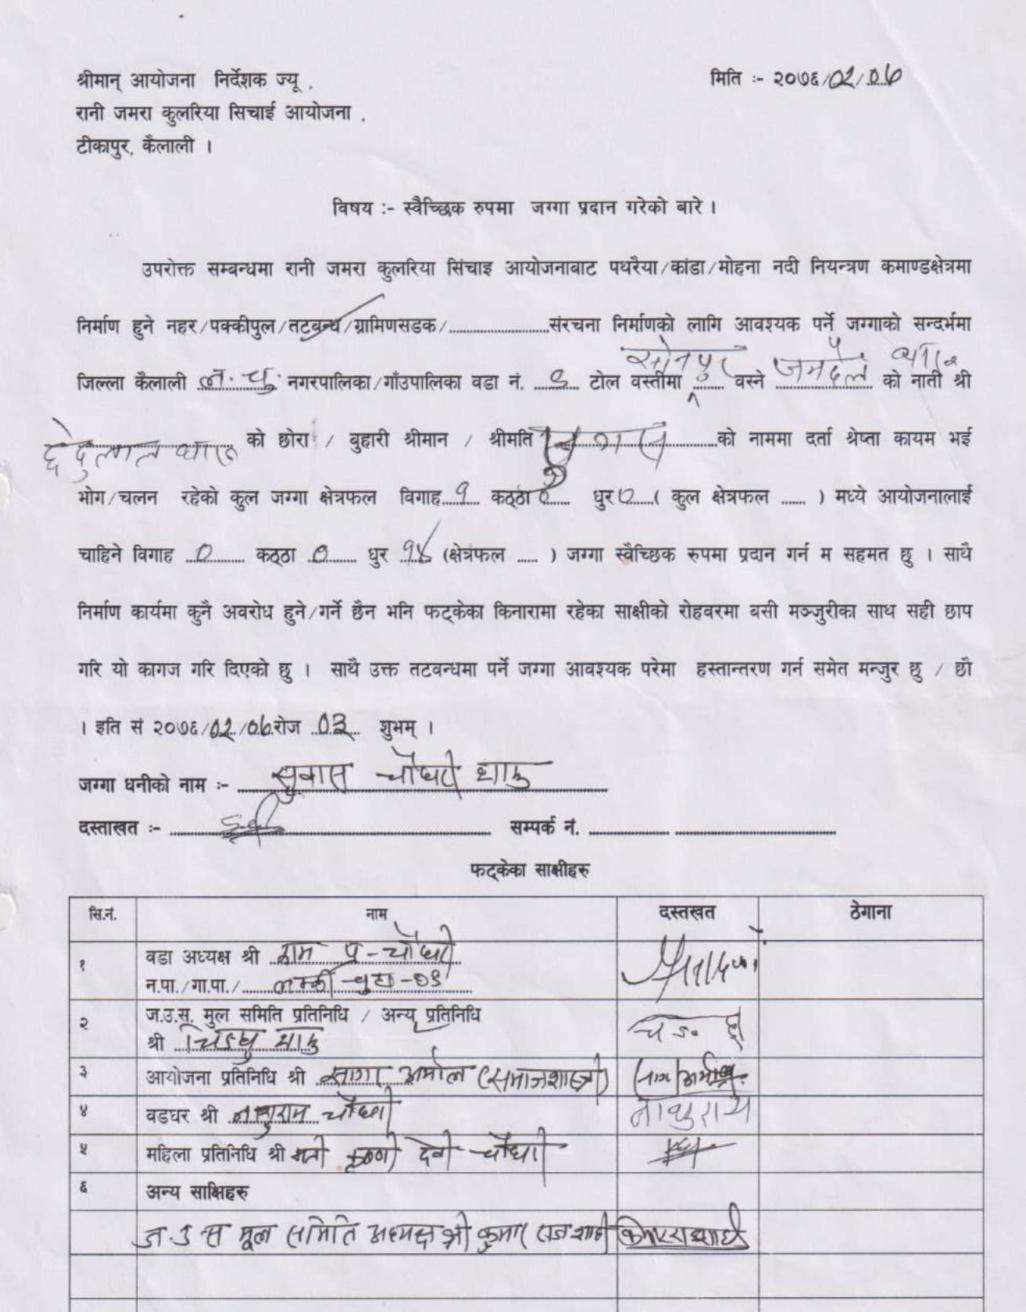 श्रीमान् आयोजना निर्देशक ज्यू ,
मिति :- २०७६/02/06
रानी जमरा कुलरिया सिचाई आयोजना ,
टीकापुर, कैलाली ।
विषय :- स्वैच्छिक रुपमा जग्गा प्रदान गरेको बारे ।
उपरोक्त सम्बन्धमा रानी जमरा कुलरिया सिंचाइ आयोजनाबाट पथरैया/कांडा/मोहना नदी नियन्त्रण कमाण्डक्षेत्रमा
निर्माण हुने नहर/पक्कीपुल/तटबन्ध/ग्रामिणसडक/..................संरचना निर्माणको लागि आवश्यक पर्ने जग्गाको सन्दर्भमा
जिल्ला कैलाली ल.चु. नगरपालिका/गाँउपालिका वडा नं. ९ टोल वस्तीमा सोनपुर वस्ने को नाती श्री
को छोरा / बुहारी श्रीमान / श्रीमति को नाममा दर्ता श्रेष्ता कायम भई
भोग/चलन रहेको कुल जग्गा क्षेत्रफल विगाह १ कठ्ठा धुर ( कुल क्षेत्रफल ..... ) मध्ये आयोजनालाई
चाहिने विगाह 0 कठ्ठा 0 धुर (क्षेत्रफल .... ) जग्गा स्वैच्छिक रुपमा प्रदान गर्न म सहमत छु । साथै
निर्माण कार्यमा कुनै अवरोध हुने/गर्ने छैन भनि फट्केका किनारामा रहेका साक्षीको रोहवरमा बसी मञ्जुरीका साथ सही छाप
गरि यो कागज गरि दिएको छु । साथै उक्त तटबन्धमा पर्ने जग्गा आवश्यक परेमा हस्तान्तरण गर्न समेत मन्जुर छु / छौ
। इति सं २०७६/02/06 रोज 03 शुभम् ।
जग्गा धनीको नाम :- सुवास चौधरी थारु
दस्ताखत :- सम्पर्क नं.
फट्केका साक्षीहरु
सि.नं. नाम दस्तखत ठेगाना
१ वडा अध्यक्ष श्री राम प्र. चौधरी
न.पा./गा.पा./ लम्की चुहा -०९
२ ज.उ.स. मुल समिति प्रतिनिधि / अन्य प्रतिनिधि
श्री थारु
३ आयोजना प्रतिनिधि श्री (समाजशास्त्री)
४ वडघर श्री चौधरी
५ महिला प्रतिनिधि श्री देवी चौधरी
६ अन्य साक्षिहरु
ज.उ.स मूल समिति अध्यक्ष श्री कुमार राज शाही